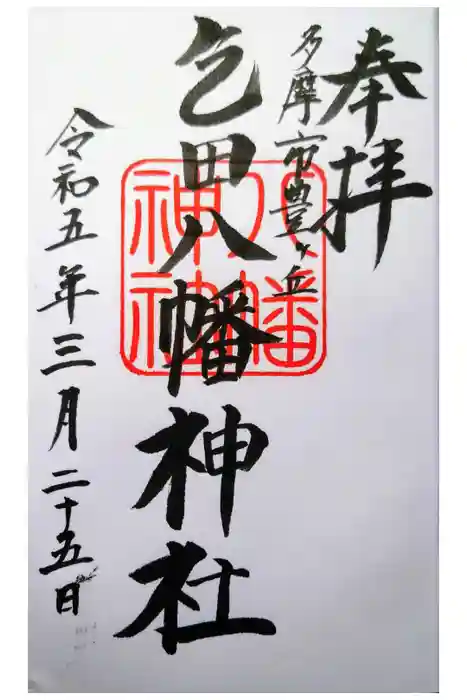 奉拝
多摩市豊ヶ丘
乞田八幡神社
八幡
神社
令和五年三月二十五日